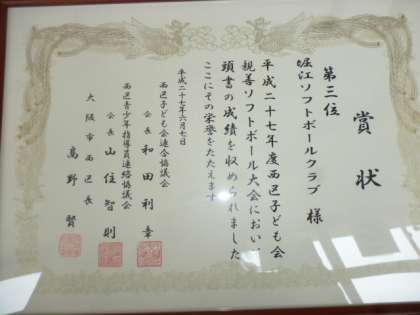 賞状
第三位
堀江ソフトボールクラブ 様
平成二十七年度西区子ども会
親善ソフトボール大会におい
頭書の成績を収められました
ここにその栄誉をたたえます
平成二十七年六月七日
西区子ども会連合協議会
会長 和田利幸
西区青少年指導員連絡協議会
会長 山住智則
大阪市西区長
高野 賢